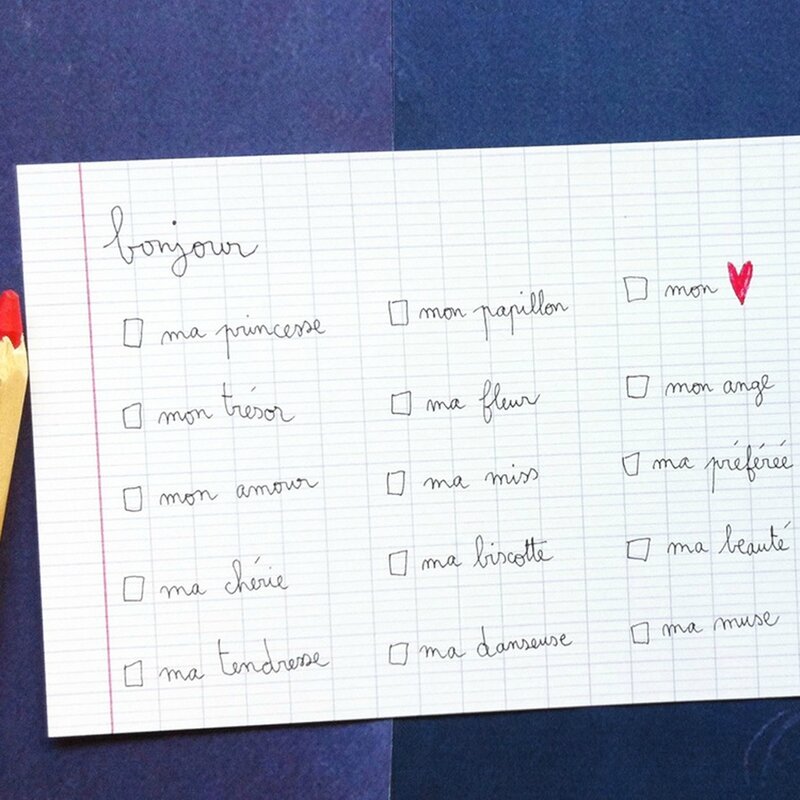 bonjour
ma princesse
mon trésor
mon amour
ma chérie
ma tendresse
mon papillon
ma fleur
ma miss
ma biscotte
ma danseuse
mon ♥
mon ange
ma préférée
ma beauté
ma muse